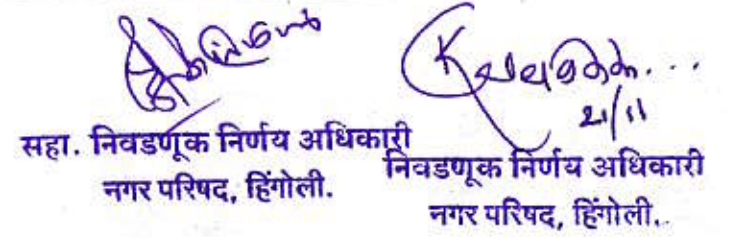 21/11
सहा. निवडणूक निर्णय अधिकारी
नगर परिषद, हिंगोली.
निवडणूक निर्णय अधिकारी
नगर परिषद, हिंगोली..